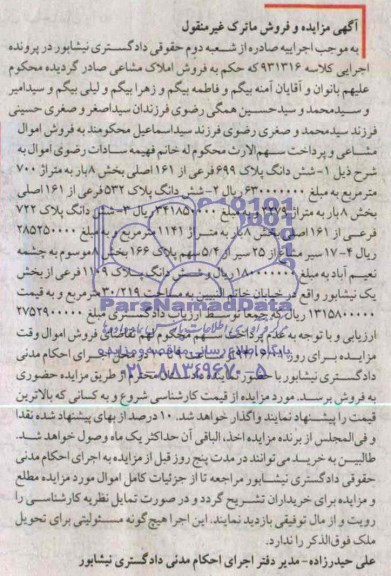 آگهی مزایده و فروش ماترک غیرمنقول
به موجب اجراییه صادره از شعبه دوم حقوقی دادگستری نیشابور در پرونده
اجرایی کلاسه ۹۳۱۳۱۶ که حکم به فروش املاک مشاعی صادر گردیده محکوم
علیهم بانوان و آقایان آمنه بیگم و فاطمه بیگم و زهرا بیگم و لیلی بیگم و سیدامیر
و سیدمحمد و سیدحسین همگی رضوی فرزندان سیداصغر و صغری حسینی
فرزند سیدمحمد و صغری رضوی فرزند سیداسماعیل محکومند به فروش اموال
مشاعی و پرداخت سهم‌الارث محکوم له خانم فهیمه سادات رضوی اموال به
شرح ذیل ۱- شش دانگ پلاک ۶۹۹ فرعی از ۱۶۱ اصلی بخش ۸ بار به متراژ ۷۰۰
مترمربع به مبلغ ۶۳۰۰۰۰۰۰۰ ریال ۲- شش دانگ پلاک ۵۳۲ فرعی از ۱۶۱ اصلی
بخش ۸ بار به متراژ به مبلغ ۳۴۱۸۵۰۰۰۰ ریال ۳- شش دانگ پلاک ۷۲۲
فرعی از ۱۶۱ اصلی بخش ۸ بار به متراژ ۱۱۴۱ مترمربع و به مبلغ ۲۸۵۲۵۰۰۰۰
ریال ۴- ۱۷ سیر مشاع از ۲۵ سیر از ۵/۴ سهم پلاک ۱۶۶ بخش ۸ موسوم به چشمه
نعیم آباد به مبلغ ۱۸۰۰۰۰۰۰۰ ریال و شش دانگ پلاک ۱۱۰۹ فرعی از بخش
یک نیشابور واقع در خیابان خاتم النبیین به مساحت ۳۰/۲۱۹ مترمربع و به قیمت
۱۳۱۵۸۰۰۰۰۰ ریال که جمعا توسط ارزیاب دادگستری مبلغ ۲۷۵۲۹۰۰۰۰۰
ارزیابی و با توجه به عدم پرداخت سهم محکوم لهم تقاضای فروش اموال وقت
مزایده برای روز محل اجرای احکام مدنی
دادگستری نیشابور با حضور نماینده محترم از طریق مزایده حضوری
به فروش برسد. مورد مزایده از قیمت کارشناسی شروع و به کسانی که بالاترین
قیمت را پیشنهاد نمایند واگذار خواهد شد. ۱۰ درصد از بهای پیشنهاد شده نقدا
و فی‌المجلس از برنده مزایده اخذ، الباقی آن حداکثر یک ماه وصول خواهد شد.
طالبین به خرید می‌توانند در مدت پنج روز قبل از مزایده به اجرای احکام مدنی
حقوقی دادگستری نیشابور مراجعه تا از جزئیات کامل اموال مورد مزایده مطلع
و مزایده برای خریداران تشریح گردد و در صورت تمایل نظریه کارشناسی را
رویت و از مال توقیفی بازدید نمایند. این اجرا هیچ گونه مسئولیتی برای تحویل
ملک فوق‌الذکر را ندارد.
علی حیدرزاده- مدیر دفتر اجرای احکام مدنی دادگستری نیشابور
ParsNamadData
پایگاه اطلاع رسانی مناقصه و مزایده
۰۲۱-۸۸۳۴۹۶۷۰-۵